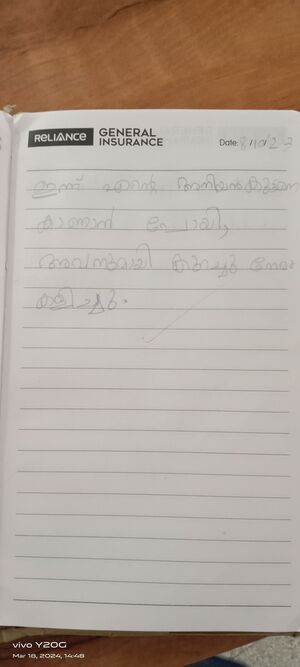 RELIANCE GENERAL INSURANCE Date: 8/10/23
ഇന്ന് എന്റെ അനിയൻകുട്ടനെ
കാണാൻ പോയി,
അവനുമായി കുറച്ചു നേരം
കളിച്ചു.
vivo Y20G
Mar 18, 2024, 14:48